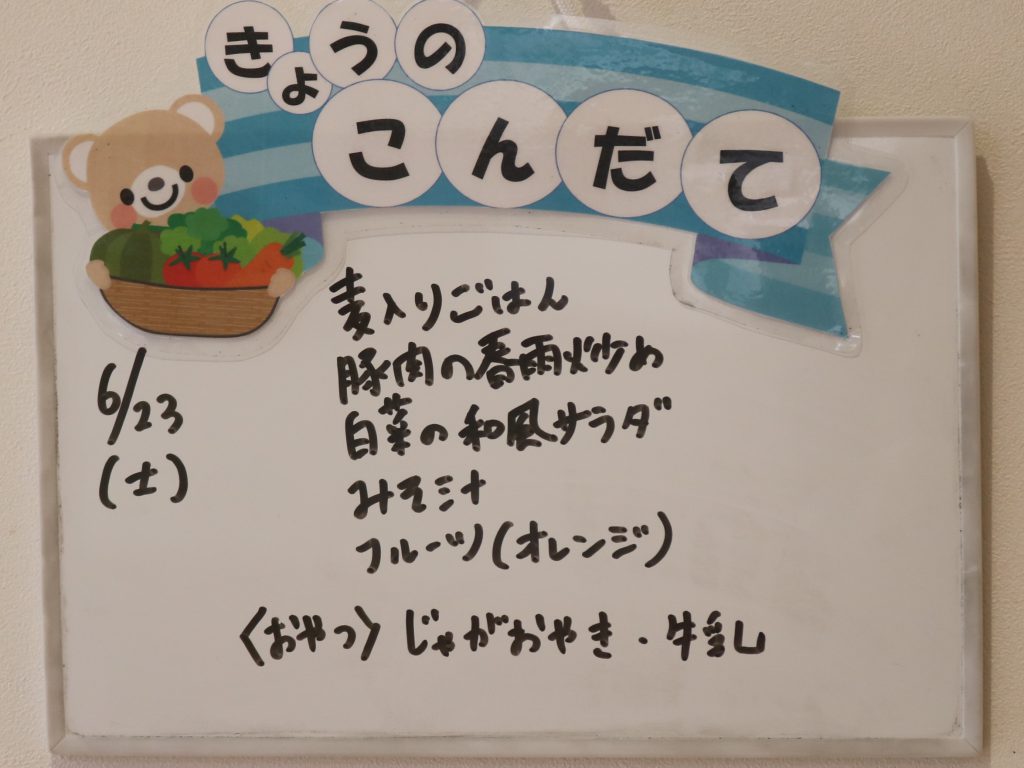 きょうの
こんだて
6/23
(土)
麦入りごはん
豚肉の春雨炒め
白菜の和風サラダ
みそ汁
フルーツ(オレンジ)
〈おやつ〉じゃがおやき・牛乳